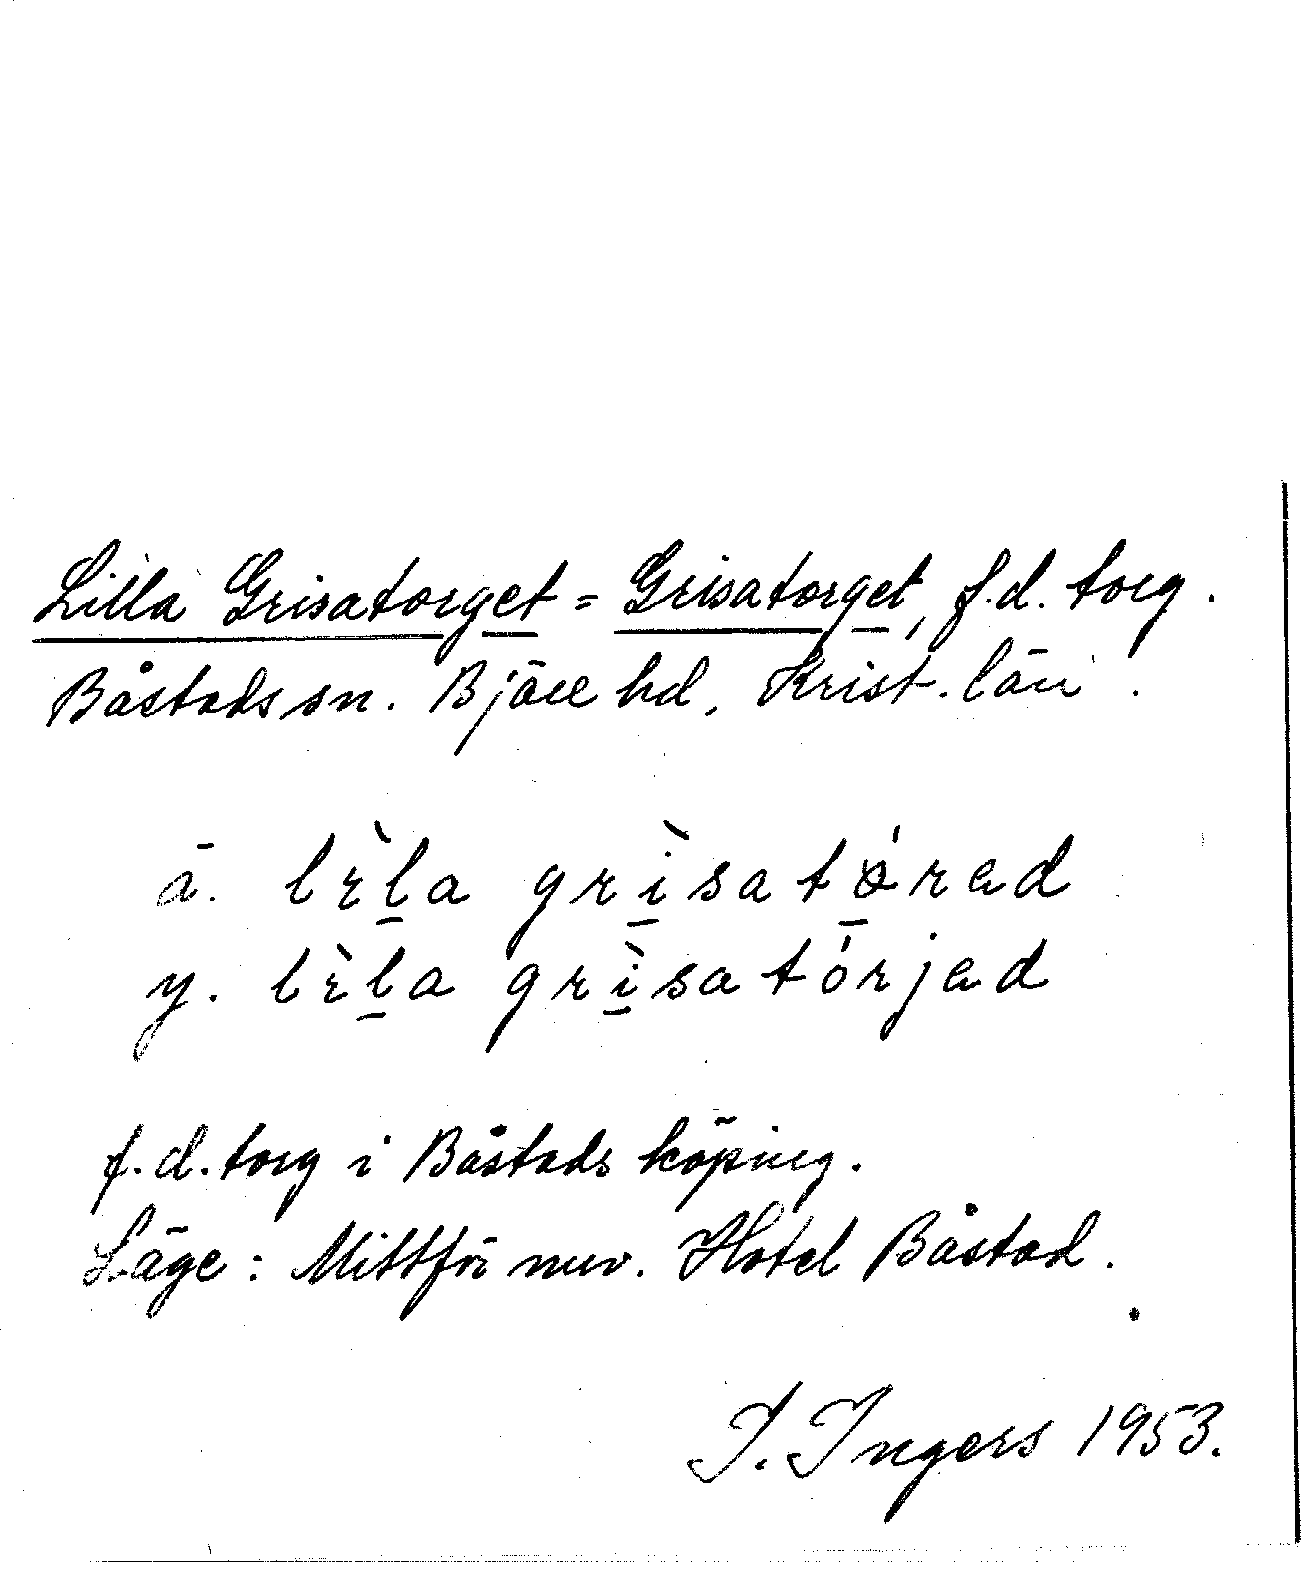 Lilla Grisatorget = Grisatorget, f.d. torg.
Båstads sn. Bjäre hd, Krist. län.
ä. lìla grìsatǿrad
y. lìla grìsatórjad
f.d. torg i Båstads köping.
Läge: Mittför nuv. Hotel Båstad.
I. Ingers 1953.